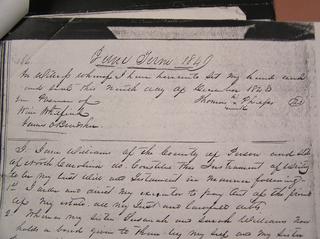 June Term 1849
In witness whereof I have hereunto set my hand and
and seal this ninth day of December 1843
In Presence of Thomas Phelps
Will Whitfield
James
I Williams of the County of Person and State
of North Carolina do Constitute this Instrument of writing
to be my last Will and Testament in manner following
1st I order and direct my executor to pay out of the
of my estate all my Just and
2 Whereas my Sister Susanah and Sarah Williams now
holds a bond given to them by my self and my Sister